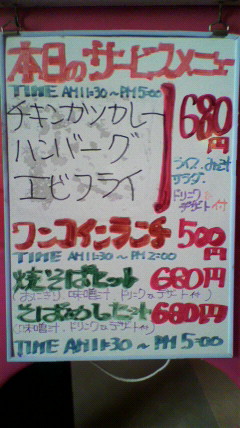 本日のサービスメニュー
TIME AM11:30～PM5:00
チキンカツカレー
ハンバーグ
エビフライ
680円
ライス、みそ汁
サラダ、
ドリンク
デザート付
ワンコインランチ 500円
TIME AM11:30～PM2:00
焼そばセット 680円
(おにぎり、味噌汁、ドリンク&デザート付)
そばめしセット 680円
(味噌汁、ドリンク&デザート付)
TIME AM11:30～PM5:00